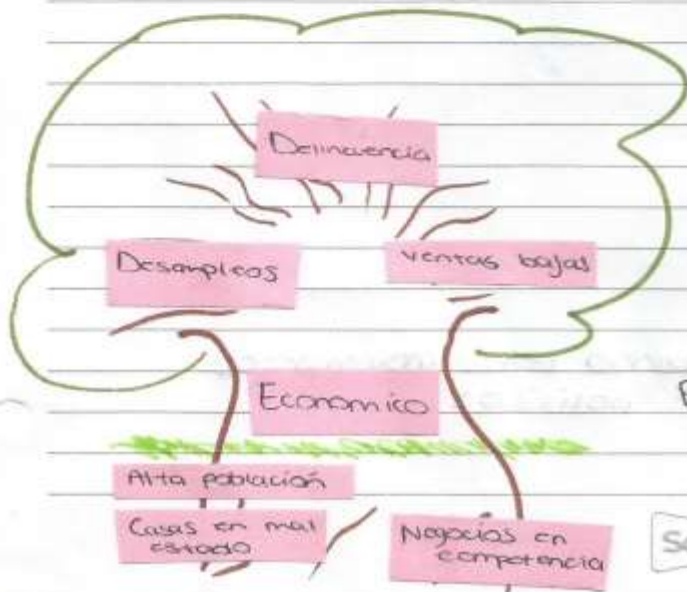 Delincuencia
Desempleos
ventas bajas
Economico
Alta población
Casas en mal
estado
Negocios en
competencia